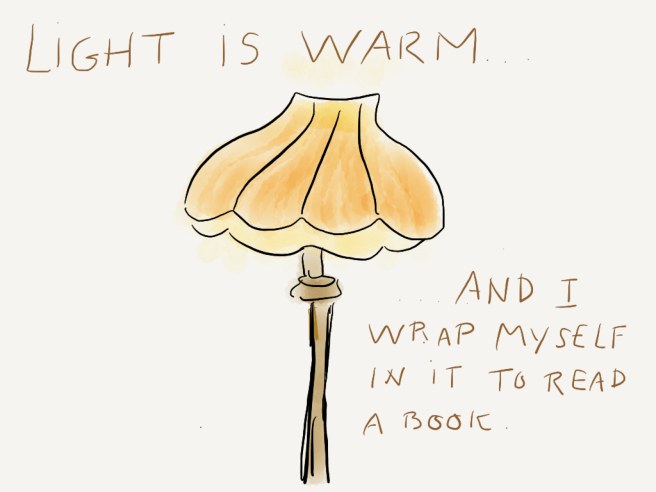 LIGHT IS WARM...
...AND I
WRAP MYSELF
IN IT TO READ
A BOOK.